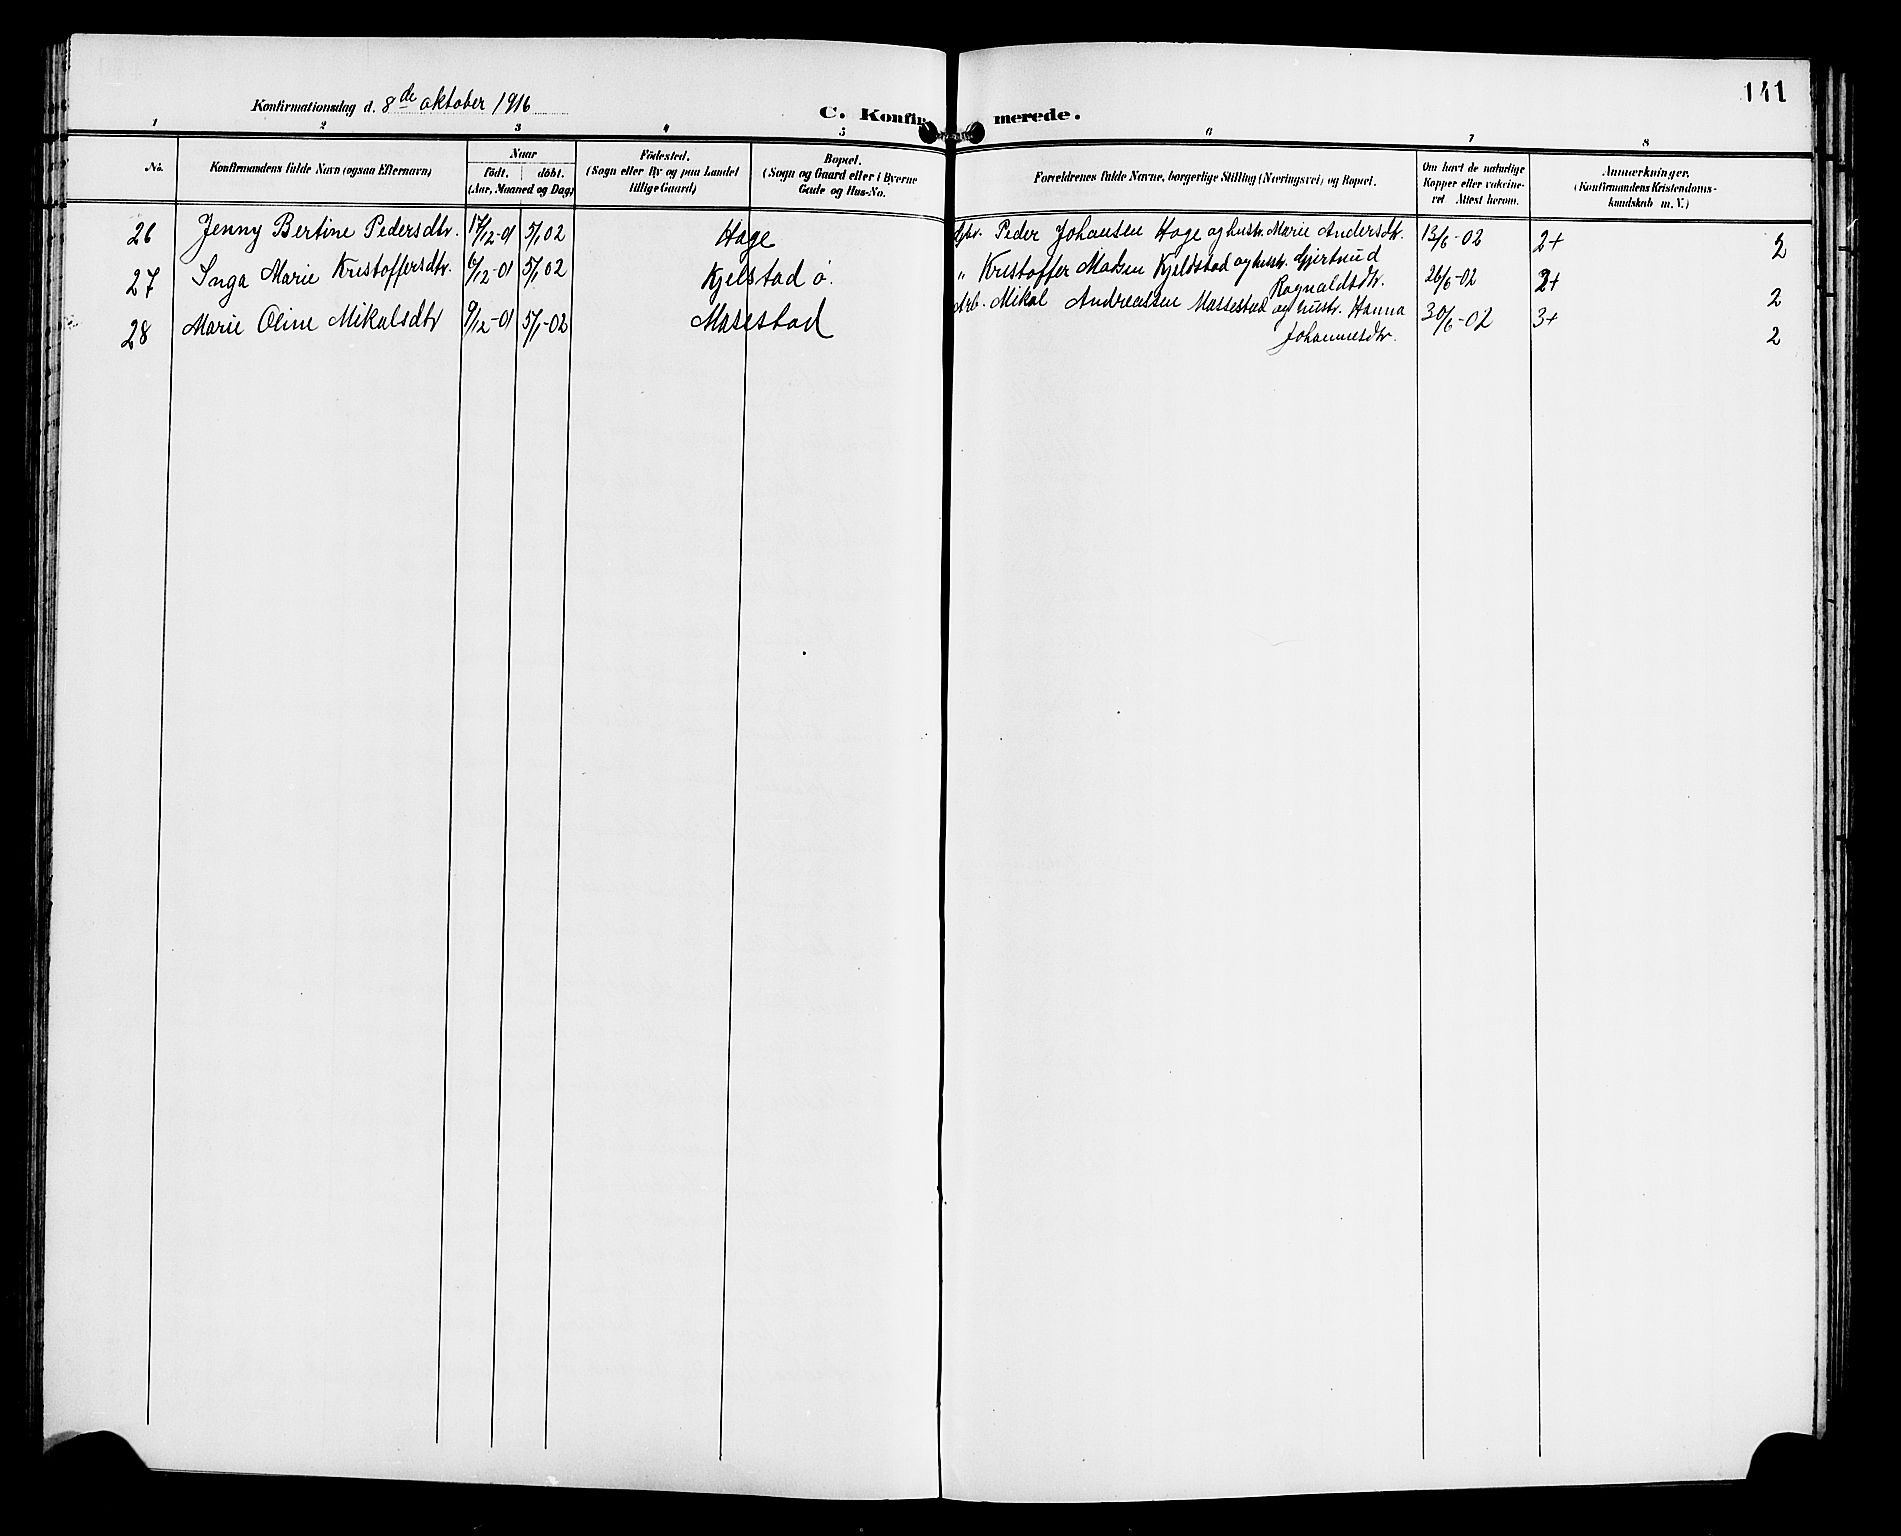 141
Konfirmationsdag d. 8de oktober 1916
C. Konfirmerede.
1 2 3 4 5 6 7 8
No.
Konfirmandens fulde Navn (ogsaa Efternavn)
Naar
födt. döbt.
(Aar, Maaned og Dag)
Födested.
(Sogn eller By og paa Landet
tillige Gaard)
Bopæl.
(Sogn og Gaard eller i Byerne
Gade og Hus-No.
Forældrenes fulde Navne, borgerlige Stilling (Næringsvei) og Bopæl.
Om havt de naturlige
Kopper eller vakcine-
ret Attest herom.
Anmærkninger.
(Konfirmandens Kristendoms-
kundskab m. V.)
26 Jenny Bertine Pedersdtr. 17/12-01 5/1 02 Hage Gbr. Peder Johansen Hage og hustr. Marie Andersdtr. 13/6-02 2+ 2
27 Inga Marie Kristoffersdtr. 6/12-01 5/1 02 Kjelstad ö. " Kristoffer Madsen Kjeldstad og hustr. Gjertrud
Ragnaldsdtr. 26/6-02 2+ 2
28 Marie Oline Mikalsdtr 9/12-01 5/1-02 Masestad Arb. Mikal Andreassen Massestad og hustr. Hanna
Johannesdtr. 30/6-02 3+ 2